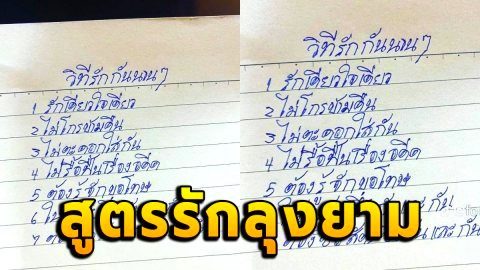 วิธีรักกันนานๆ
1 รักเดียวใจเดียว
2 ไม่โกรธข้ามคืน
3 ไม่ตะคอกใส่กัน
4 ไม่รื้อฟื้นเรื่องอดีต
5 ต้องรู้จักขอโทษ
6
7
วิธีรักกันนานๆ
1 รักเดียวใจเดียว
2 ไม่โกรธข้ามคืน
3 ไม่ตะคอกใส่กัน
4 ไม่รื้อฟื้นเรื่องอดีต
5 ต้องรู้จักขอโทษ
กัน
ต้องซื่อสัตย์ และกัน
สูตรรักลุงยาม